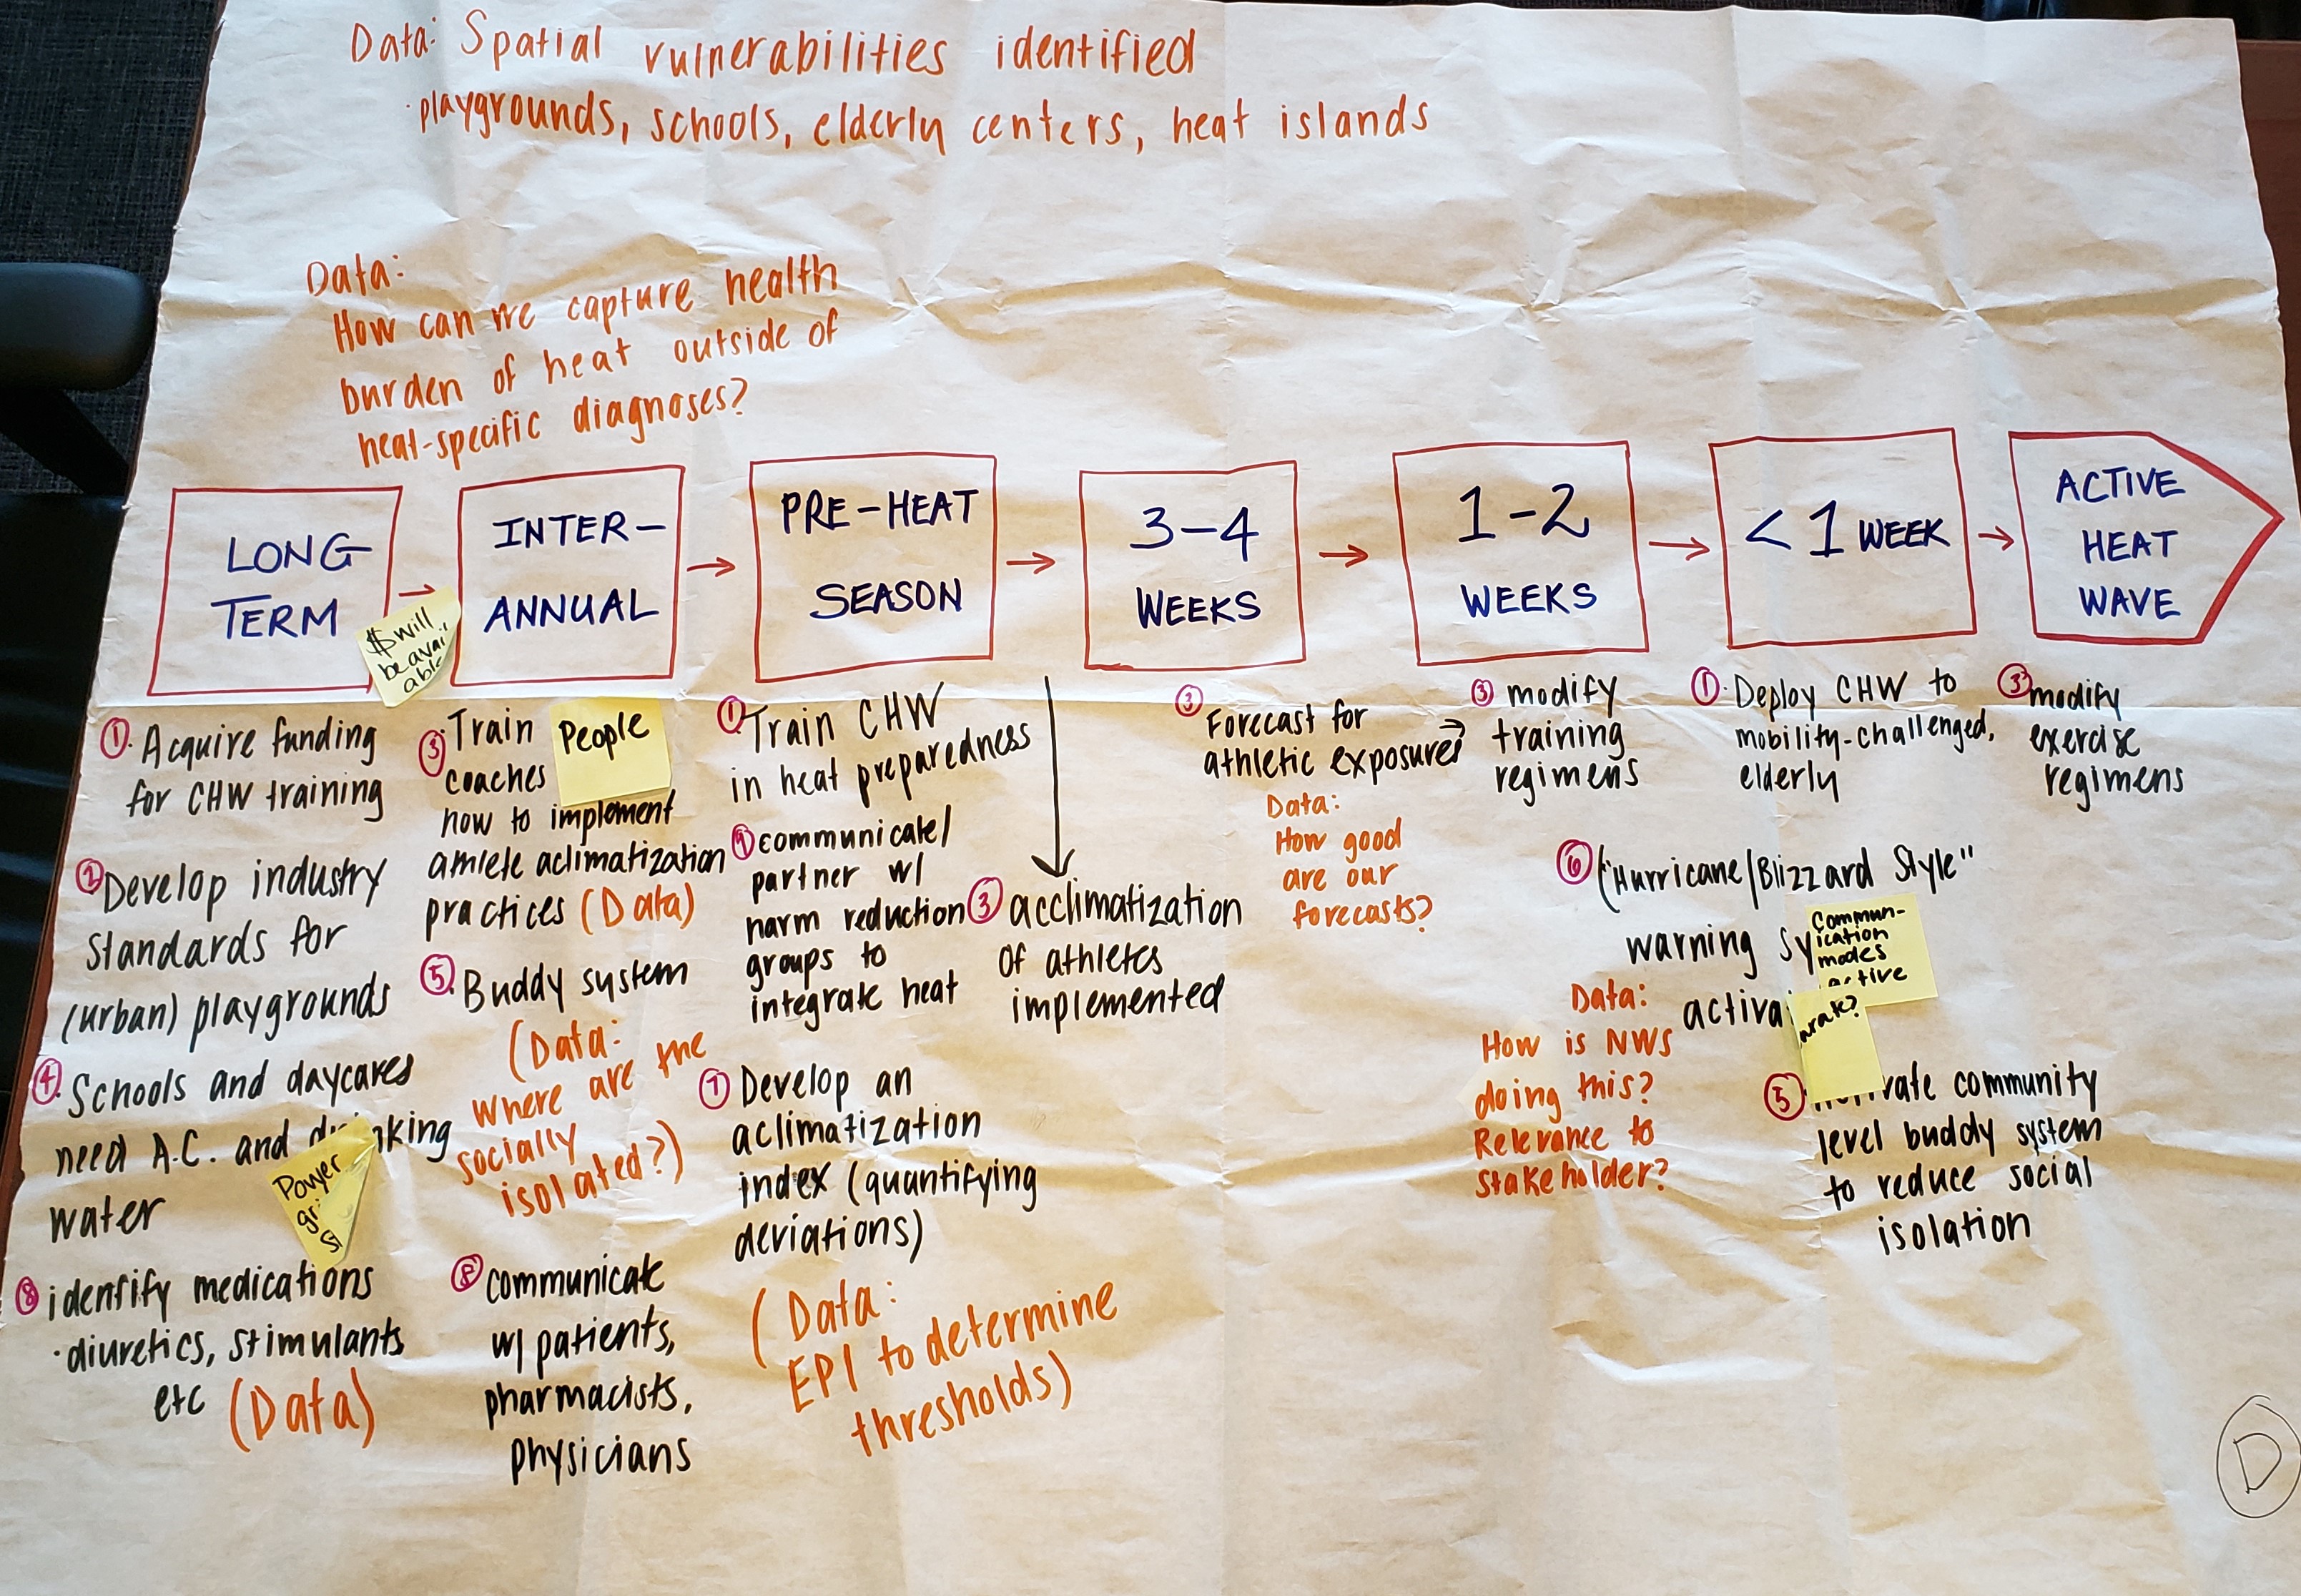 Data: Spatial vulnerabilities identified
· playgrounds, schools, elderly centers, heat islands
Data:
How can we capture health
burden of heat outside of
heat-specific diagnoses?
LONG
TERM
$ will
be avail
able
INTER-
ANNUAL
PRE-HEAT
SEASON
3-4
WEEKS
1-2
WEEKS
< 1 WEEK
ACTIVE
HEAT
WAVE
① Acquire funding
for CHW training
② Develop industry
standards for
(urban) playgrounds
④ Schools and daycares
need A.C. and drinking
water
Power
⑧ identify medications
· diuretics, stimulants
etc (Data)
③ Train
coaches
how to implement
athlete aclimatization
practices (Data)
People
⑤ Buddy system
(Data:
where are the
socially
isolated?)
⑧ communicate
w/ patients,
pharmacists,
physicians
① Train CHW
in heat preparedness
⑨ communicate/
partner w/
harm reduction
groups to
integrate heat
⑦ Develop an
aclimatization
index (quantifying
deviations)
(Data:
EPI to determine
thresholds)
③ acclimatization
of athletes
implemented
③ Forecast for
athletic exposures
Data:
How good
are our
forecasts?
③ modify
training
regimens
① Deploy CHW to
mobility-challenged,
elderly
⑥ ("Hurricane/Blizzard Style"
warning sy
activa
Commun-
ication
modes
Data:
How is NWS
doing this?
Relevance to
stakeholder?
⑤ community
level buddy system
to reduce social
isolation
③ modify
exercise
regimens
D